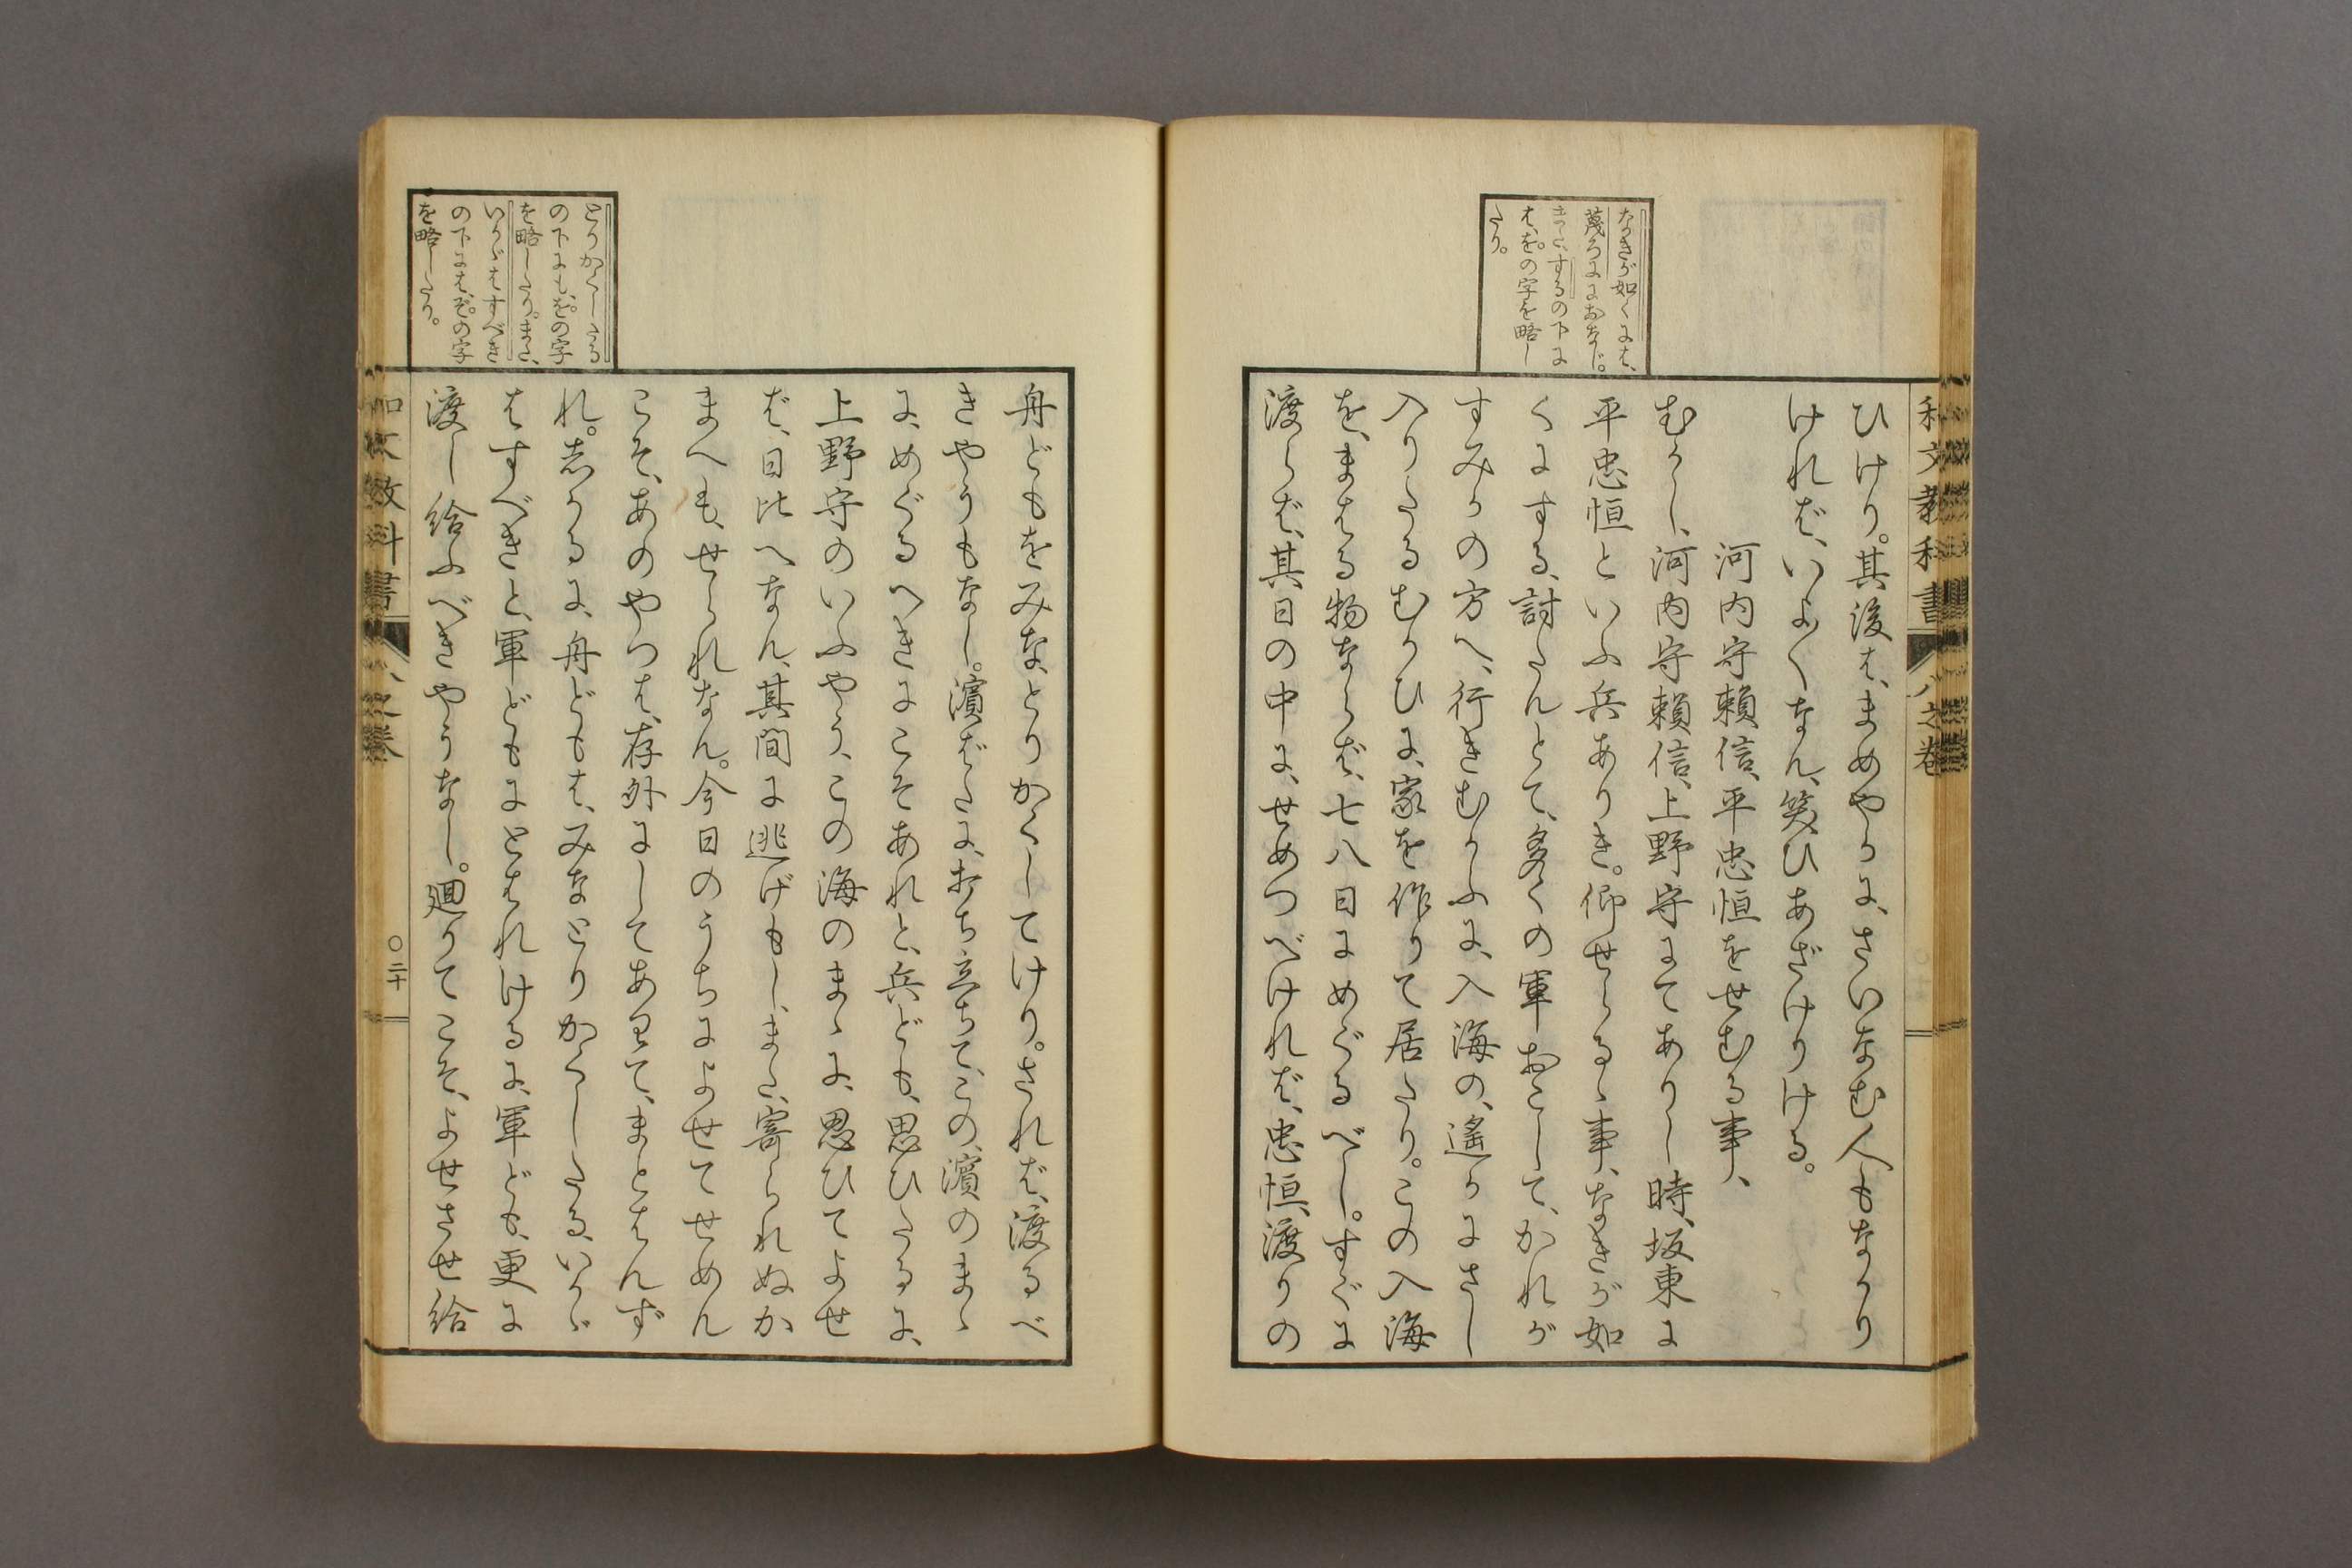 和文教科書
八之巻
なきが如くには、
蔑ろにおなじ。
また、するの下に
は、をの字を略し
たり。
ひけり。其後は、まめやかに、さいなむ人もなかり
ければ、いよ〳〵なん、笑ひあざけりける。
河内守頼信、平忠恒をせむる事、
むかし、河内守頼信、上野守にてありし時、坂東に
平忠恒といふ兵ありき。仰せらるゝ事、なきが如
くにする、討たんとて、多くの軍おこして、かれが
すみかの方へ、行きむかふに、入海の、遙かにさし
入りたるむかひに、家を作りて居たり。この入海
を、まはる物ならば、七八日にめぐるべし。すぐに
渡らば、其日の中に、せめつべければ、忠恒、渡りの
とりかくしたる
の下にも、をの字
を略したり。また、
いかゞはすべき
の下には、ぞの字
を略したり。
舟どもをみな、とりかくしてけり。されば、渡るべ
きやうもなし。濱ばたに、おち立ちて、この、濱のまゝ
に、めぐるへきにこそあれと、兵ども、思ひたるに、
上野守のいふやう、この海のまゝに、思ひてよせ
ば、日比へなん、其間に逃げもし、また、寄られぬか
まへも、せられなん。今日のうちによせてせめん
こそ、あのやつは、存外にしてあわて、まとはんず
れ。志かるに、舟どもは、みなとりかくしたる、いかゞ
はすべきと、軍どもにとはれけるに、軍ども、更に
渡し給ふべきやうなし。廻りてこそ、よせさせ給
和文教科書
八之巻
〇二十